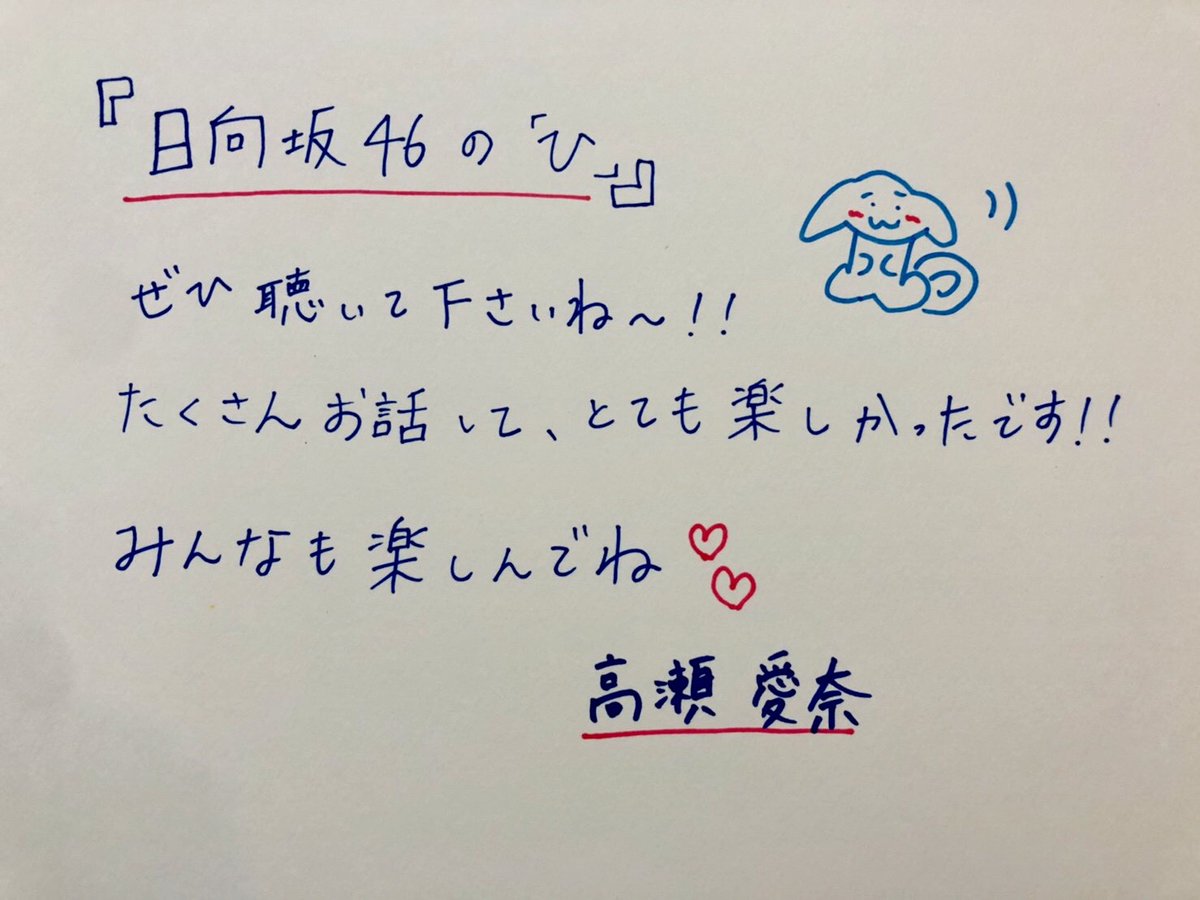 『日向坂46の「ひ」』
ぜひ聴いて下さいね〜!!
たくさんお話して、とても楽しかったです!!
みんなも楽しんでね♡♡
高瀬 愛奈